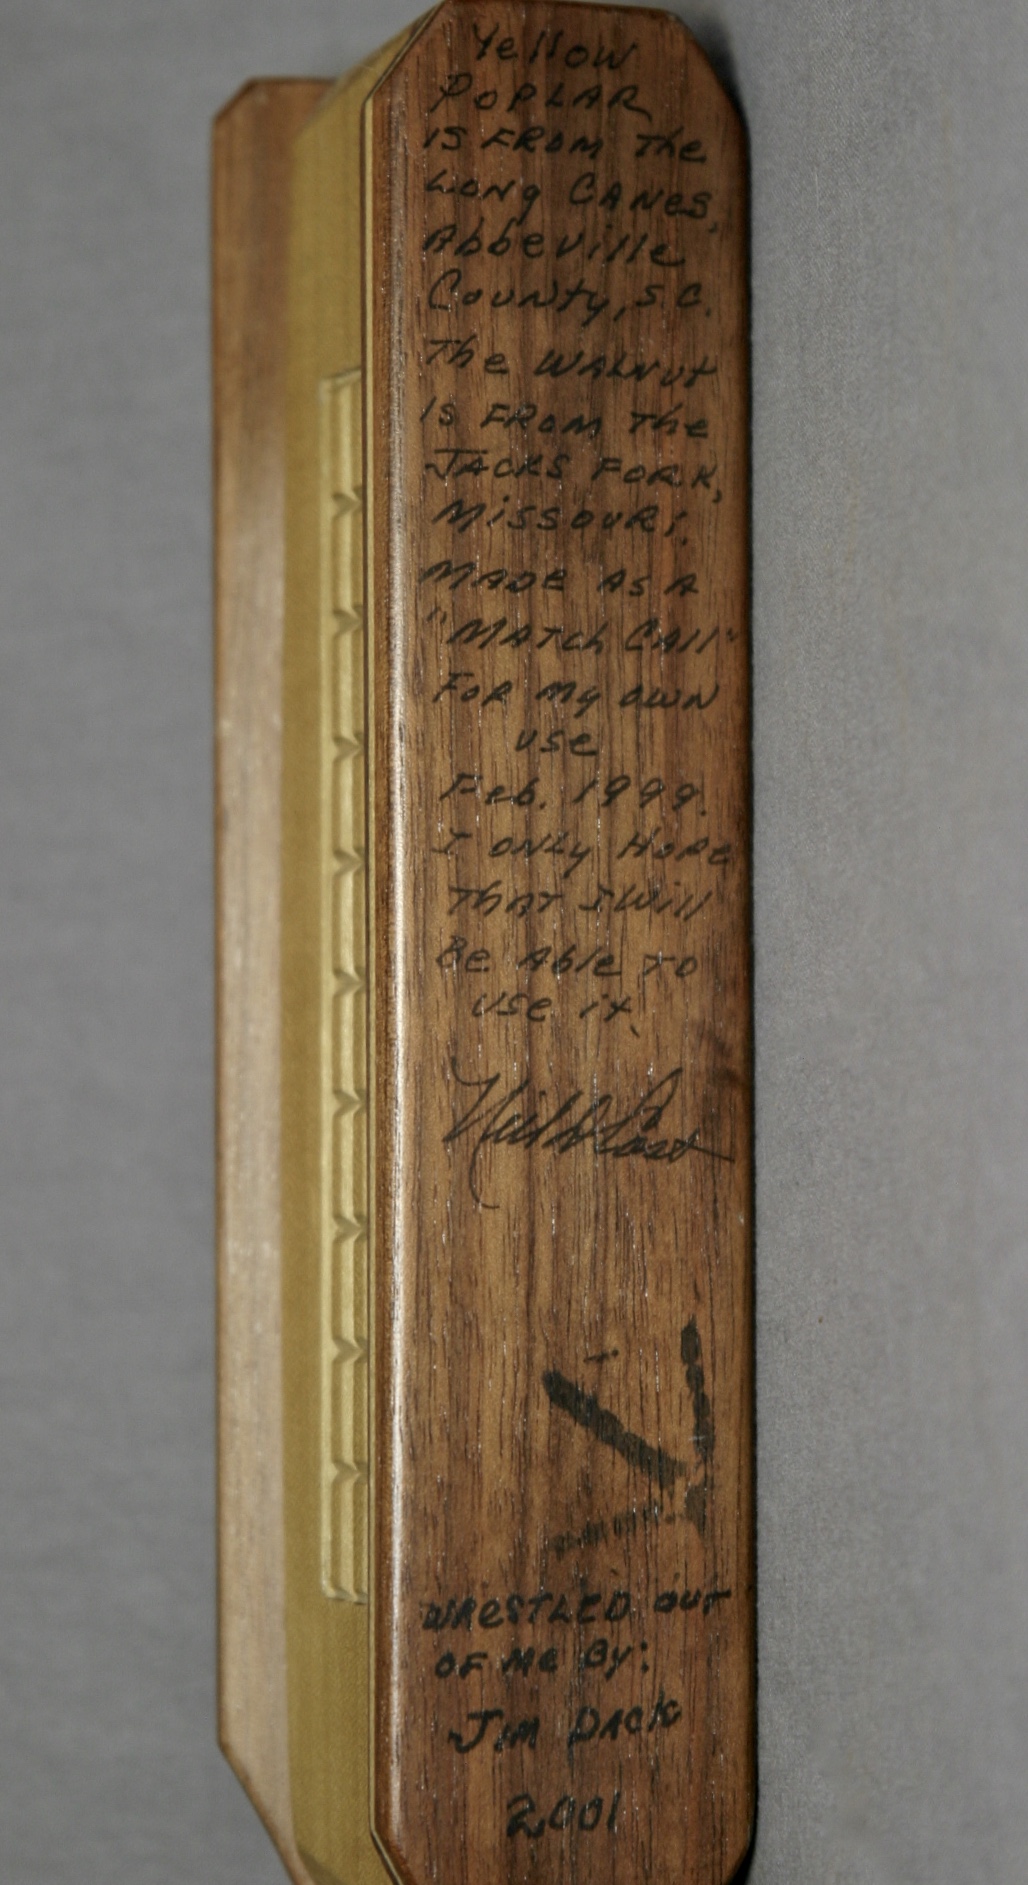 Yellow
POPLAR
IS FROM The
LONg CANES,
Abbeville
County, S.C.
The WALNUT
IS FROM The
JACKS FORK,
MISSOURI.
MADE AS A
"MATCh CAll"
FOR My OWN
use
Feb. 1999.
I ONly HOPE
THAT I Will
Be Able TO
use it.
WRESTLED OUT
OF ME By:
JIM DACK
2001